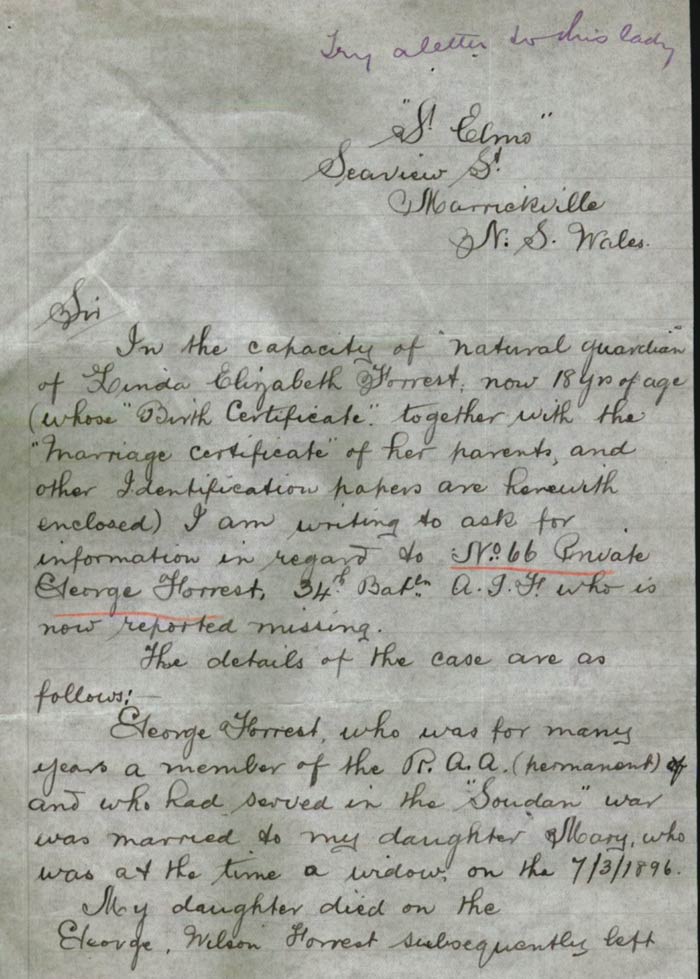 Try a letter to this lady
"St Elmo"
Seaview St
Marrickville
N. S. Wales.
Sir
In the capacity of "natural guardian"
of Linda Elizabeth Forrest, now 18 yrs of age
(whose "Birth Certificate" together with the
"Marriage certificate" of her parents, and
other Identification papers are herewith
enclosed) I am writing to ask for
information in regard to No. 66 Private
George Forrest, 34th Batln A.I.F. who is
now reported missing.
The details of the case are as
follows:—
George Forrest, who was for many
years a member of the R.A.A. (permanent)
and who had served in the "Soudan" war
was married to my daughter Mary, who
was at the time a widow, on the 7/3/1896.
My daughter died on the
George, Wilson Forrest subsequently left